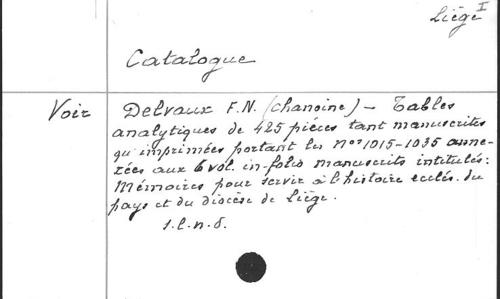 Liège I
Catalogue
Voir Delvaux F.N. (chanoine) – Tables
analytiques de 425 pièces tant manuscrites
qu'imprimées portant les nos 1015–1035 anne-
xées aux 6 vol. in-folio manuscrits intitulés:
Mémoires pour servir à l'histoire ecclés. du
pays et du diocèse de Liège.
s.l.n.d.